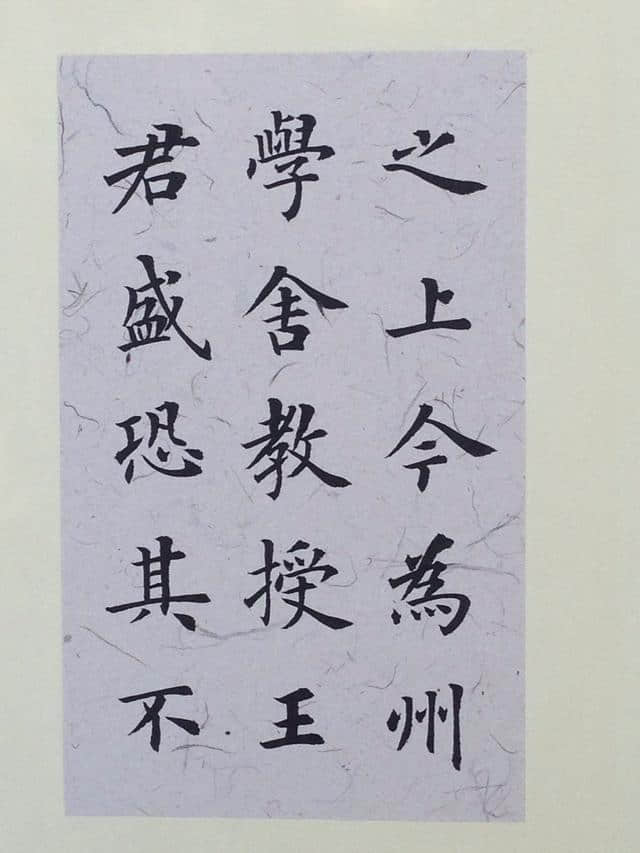 之上今為州
學舍教授王
君盛恐其不